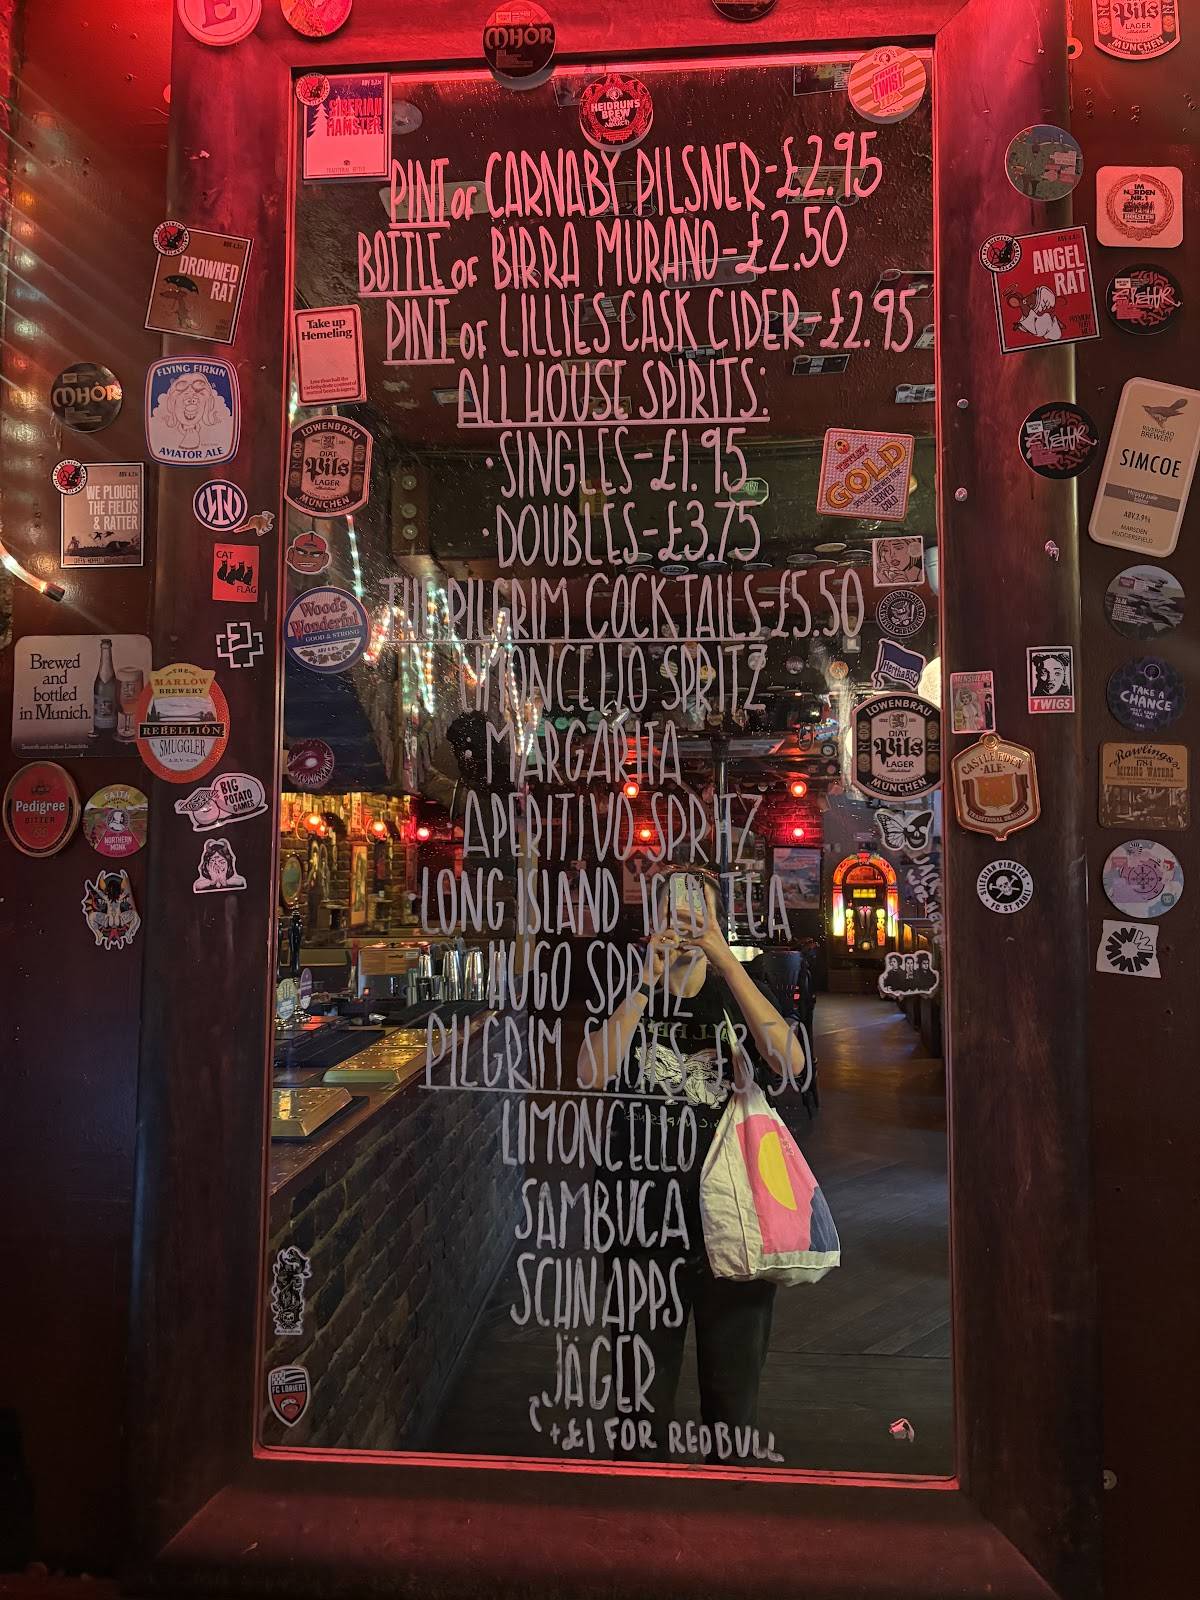 MHÒR
Pils
LAGER
MÜNCHEN
SIBERIAN
HAMSTER
HEIDRUN'S
BREW
FRUIT
TWIST
PINT OF CARNABY PILSNER-£2.95
BOTTLE OF BIRRA MURANO-£2.50
PINT OF LILLIES CASK CIDER-£2.95
ALL HOUSE SPIRITS:
•SINGLES-£1.95
•DOUBLES-£3.75
THE PILGRIM COCKTAILS-£5.50
LIMONCELLO SPRITZ
MARGARITA
APERITIVO SPRITZ
LONG ISLAND ICED TEA
HUGO SPRITZ
PILGRIM SHOTS £3.50
LIMONCELLO
SAMBUCA
SCHNAPPS
JÄGER
+£1 FOR REDBULL
DROWNED
RAT
Take up
Hemeling
MHÒR
FLYING FIRKIN
AVIATOR ALE
LÖWENBRÄU
DIÄT
Pils
LAGER
MÜNCHEN
WE PLOUGH
THE FIELDS
& RATTER
CAT
FLAG
Wood's
Wonderful
GOOD & STRONG
Brewed
and
bottled
in Munich.
THE
MARLOW
BREWERY
REBELLION
SMUGGLER
Pedigree
BITTER
FAITH
NORTHERN
MONK
BIG
POTATO
GAMES
FC LORIENT
IM
NORDEN
NR.1
HOLSTEN
ANGEL
RAT
GOLD
SERVED
COLD
RIVERHEAD
BREWERY
SIMCOE
Hoppy pale
ABV.3.9%
MARSDEN
HUDDERSFIELD
Hertha BSC
LÖWENBRÄU
DIÄT
Pils
LAGER
MÜNCHEN
MENSWEAR
TWIGS
TAKE A
CHANCE
CASTLE EDEN
ALE
TRADITIONAL DRAUGHT
Rawlings
1784
MIXING WATERS
FC ST. PAULI